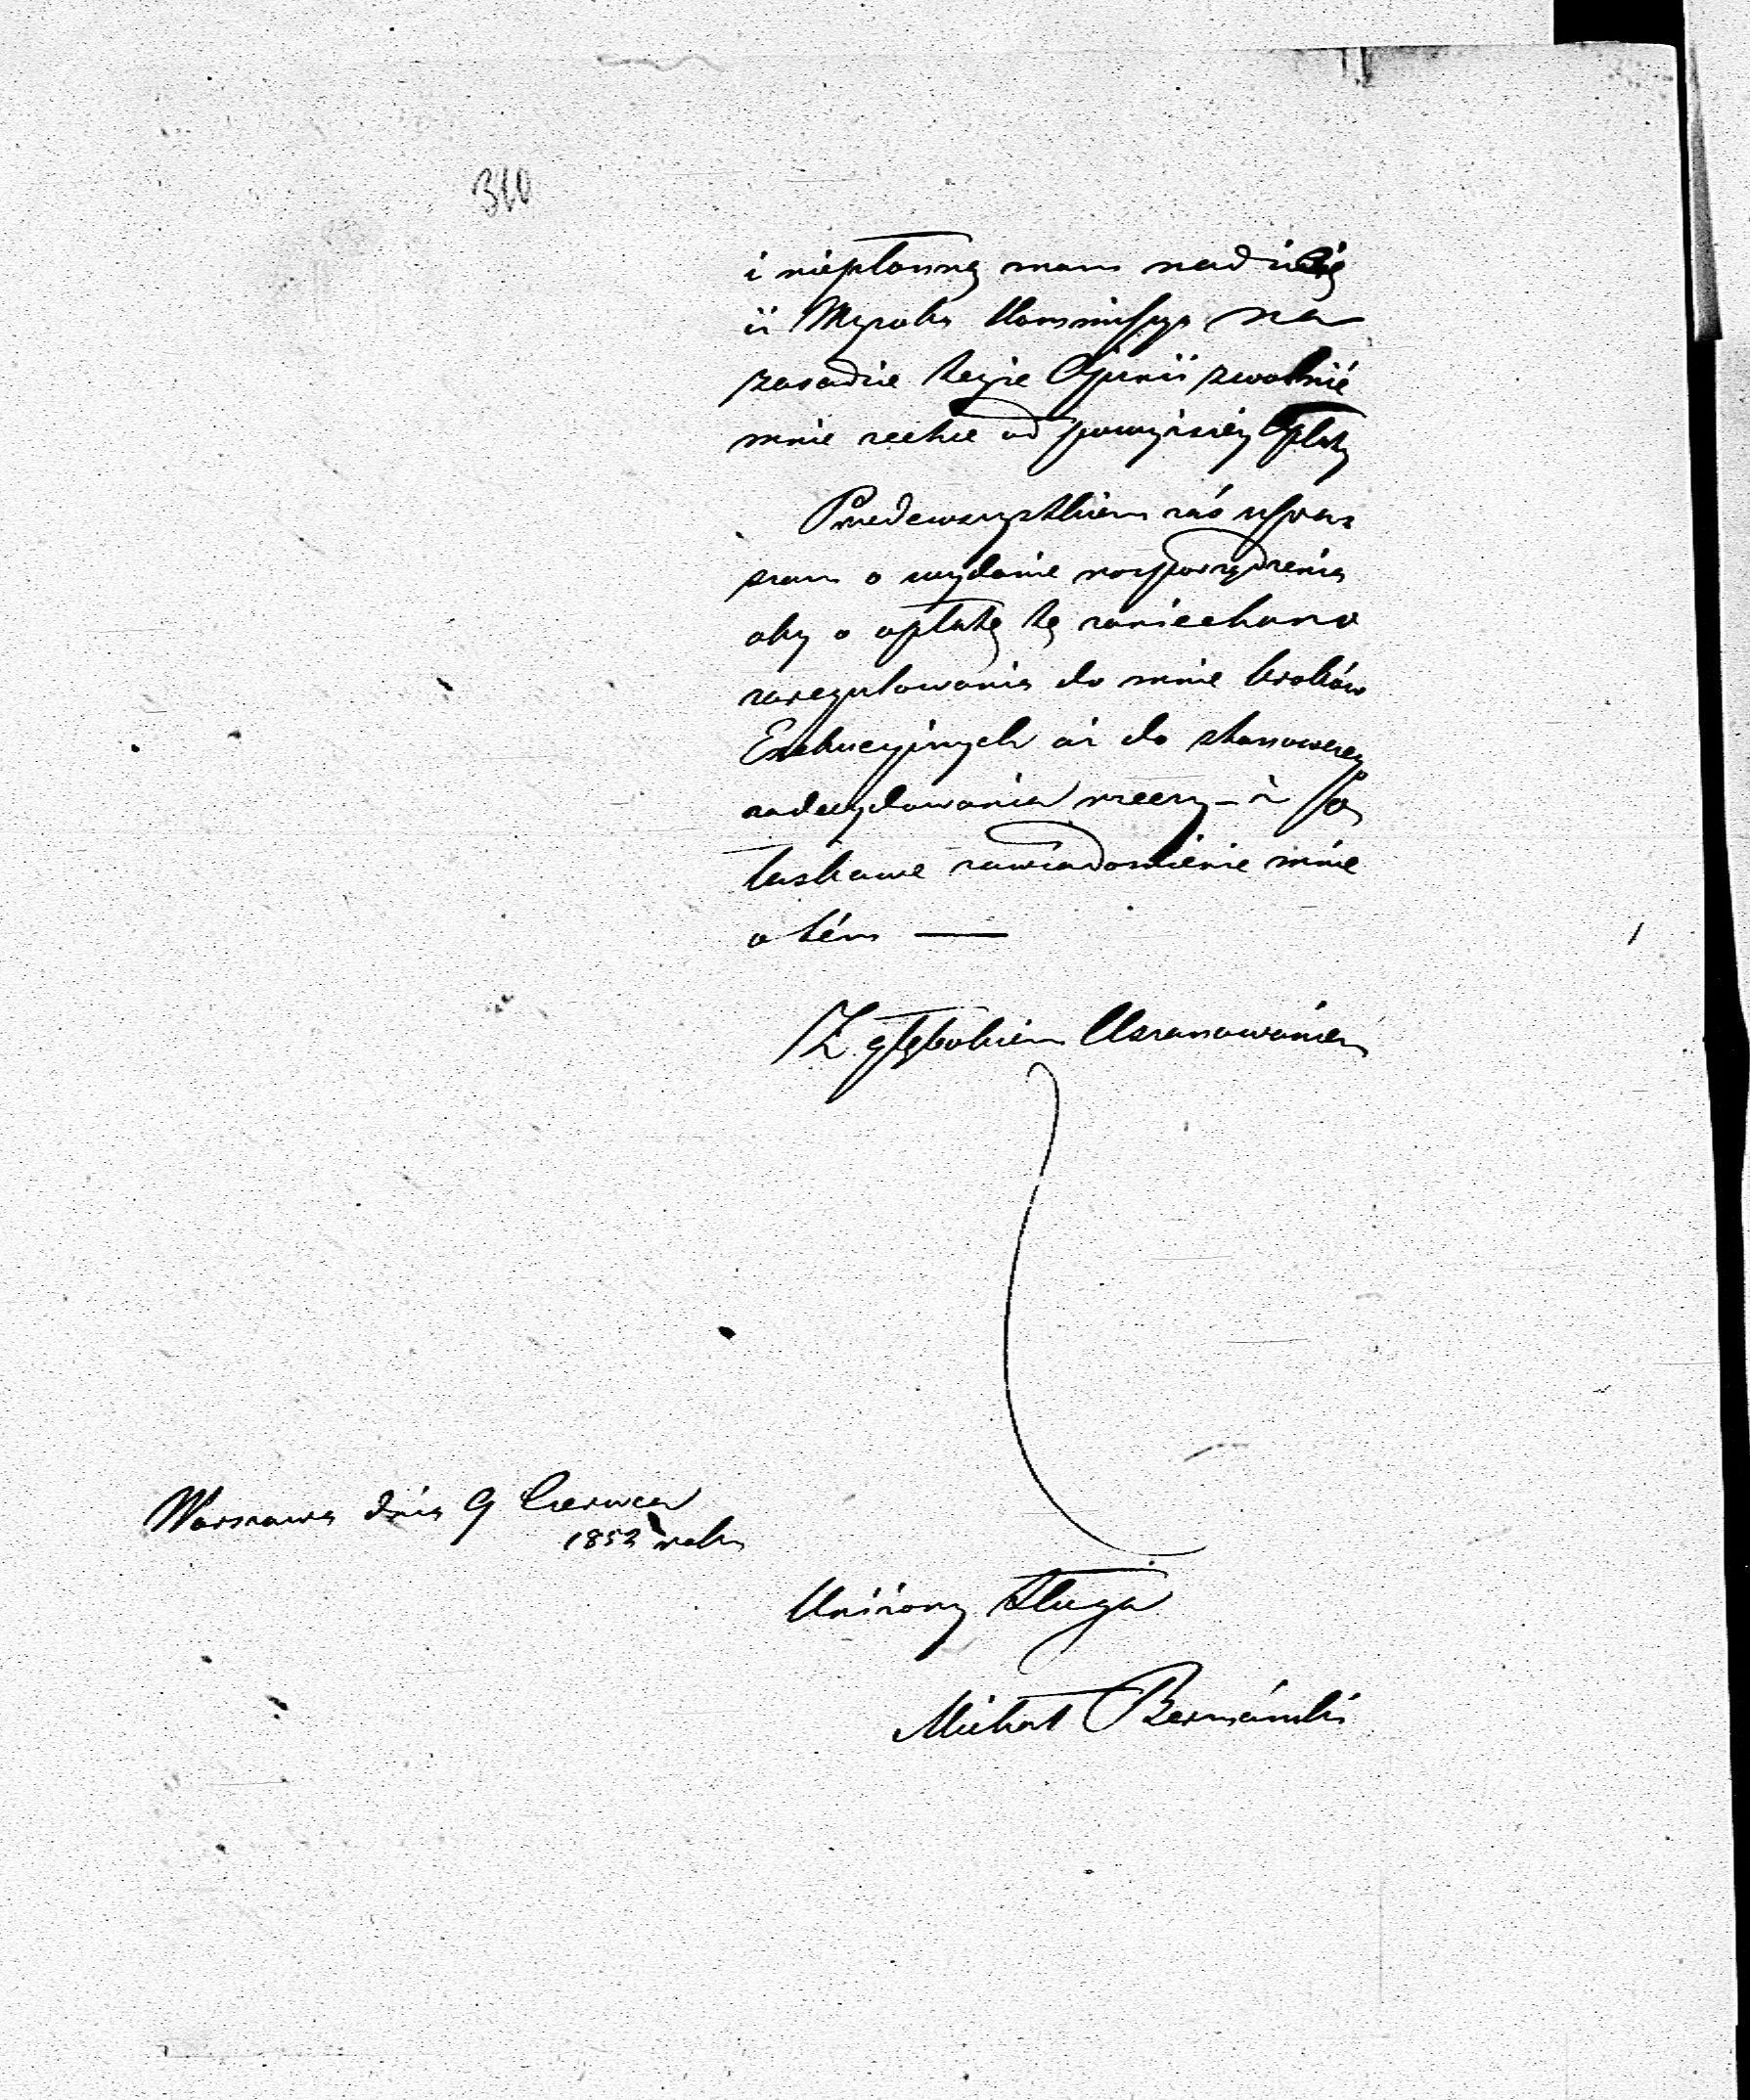 310
i niepłonną mam nadzieję
iż Wysoka Kommissya na
zasadzie tejże Opinii zwolnić
mnie zechce od powyższéj Opłaty
Przedewszystkiem zaś uprasz
szam o wydanie rozporządzenia
aby o opłatę tę zaniechano
zaregulowania do mnie kroków
Exekucyjnych aż do stanowczéj
zadecydowania rzeczy – i
łaskawe zawiadomienie mnie
o tém —
Z głębokiem Uszanowaniem
Warszawa dnia 9 Czerwca
1852 roku
Uniżony Sługa
Michał